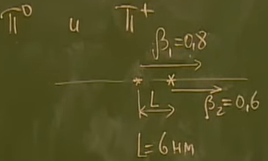 π⁰ и π⁺
β₁=0,8
L
β₂=0,6
L=6нм